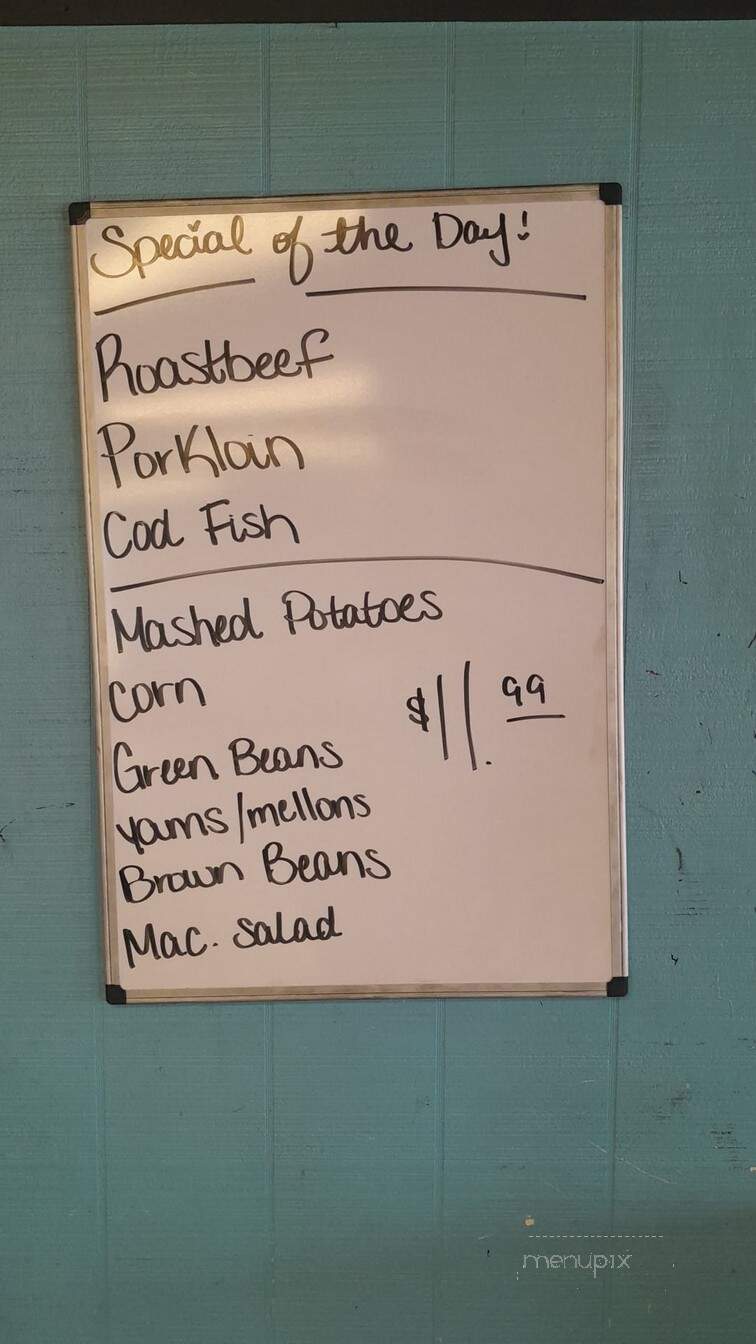 Special of the Day!
Roastbeef
Porkloin
Cod Fish
Mashed Potatoes
Corn
$11.99
Green Beans
yams/mellons
Brown Beans
Mac. salad
menupix